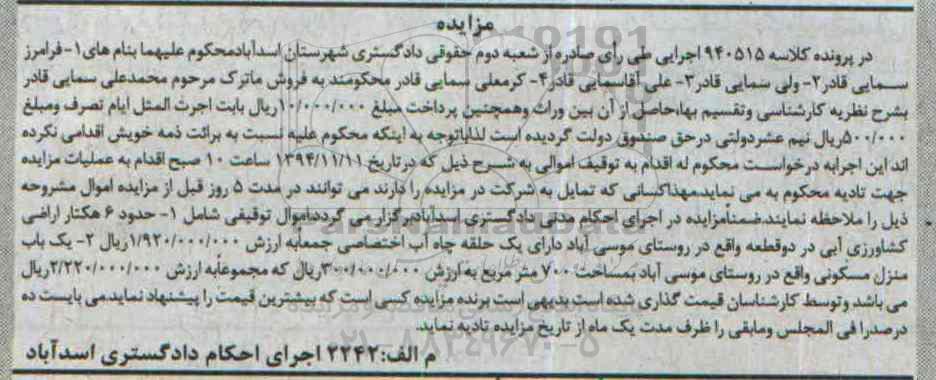 مزایده
در پرونده کلاسه ۹۴۰۵۱۵ اجرایی طی رأی صادره از شعبه دوم حقوقی دادگستری شهرستان اسدآباد محکوم علیهما بنام های ۱- فرامرز
سمایی قادر ۲- ولی سمایی قادر ۳- علی آقا سمایی قادر ۴- کرمعلی سمایی قادر محکومند به فروش ماترک مرحوم محمدعلی سمایی قادر
بشرح نظریه کارشناسی وتقسیم بهاءحاصل از آن بین وراث وهمچنین پرداخت مبلغ ۱۰/۰۰۰/۰۰۰ریال بابت اجرت المثل ایام تصرف ومبلغ
۵۰۰/۰۰۰ریال نیم عشردولتی درحق صندوق دولت گردیده است لذاباتوجه به اینکه محکوم علیه نسبت به برائت ذمه خویش اقدامی نکرده
اند این اجرابه درخواست محکوم له اقدام به توقیف اموالی به شرح ذیل که درتاریخ ۱۳۹۴/۱۱/۱۱ ساعت ۱۰ صبح اقدام به عملیات مزایده
جهت تادیه محکوم به می نمایدمهذاکسانی که تمایل به شرکت در مزایده را دارند می توانند در مدت ۵ روز قبل از مزایده اموال مشروحه
ذیل را ملاحظه نمایند.ضمنأمزایده در اجرای احکام مدنی دادگستری اسدآبادبرگزار می گردداموال توقیفی شامل ۱- حدود ۶ هکتار اراضی
کشاورزی آبی در دوقطعه واقع در روستای موسی آباد دارای یک حلقه چاه آب اختصاصی جمعأبه ارزش ۱/۹۲۰/۰۰۰/۰۰۰ریال ۲- یک باب
منزل مسکونی واقع در روستای موسی آباد بمساحت ۷۰۰ متر مربع به ارزش ۳۰۰/۰۰۰/۰۰۰ریال که مجموعأبه ارزش ۲/۲۲۰/۰۰۰/۰۰۰ریال
می باشد وتوسط کارشناسان قیمت گذاری شده است بدیهی است برنده مزایده کسی است که بیشترین قیمت را پیشنهاد نماید.می بایست ده
درصدرا فی المجلس ومابقی را ظرف مدت یک ماه از تاریخ مزایده تادیه نماید.
م الف:۲۲۴۲ اجرای احکام دادگستری اسدآباد
ParsNamadData
۰۲۱-۸۸۳۴۹۶۷۰-۵